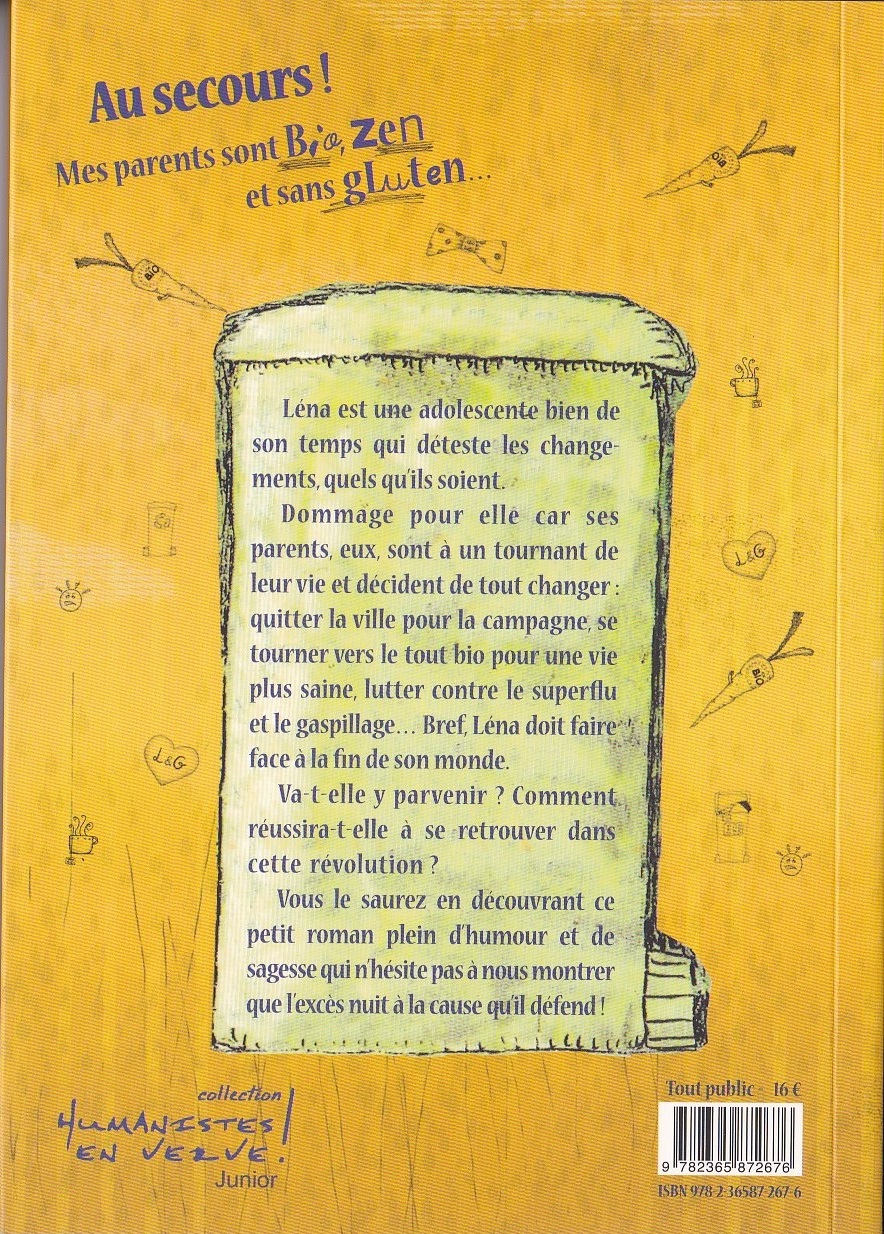 Au secours !
Mes parents sont Bio, Zen
et sans gluten...
BIO
BIO
Léna est une adolescente bien de
son temps qui déteste les change-
ments, quels qu'ils soient.
Dommage pour elle car ses
parents, eux, sont à un tournant de
leur vie et décident de tout changer :
quitter la ville pour la campagne, se
tourner vers le tout bio pour une vie
plus saine, lutter contre le superflu
et le gaspillage... Bref, Léna doit faire
face à la fin de son monde.
Va-t-elle y parvenir ? Comment
réussira-t-elle à se retrouver dans
cette révolution ?
Vous le saurez en découvrant ce
petit roman plein d'humour et de
sagesse qui n'hésite pas à nous montrer
que l'excès nuit à la cause qu'il défend !
L&G
BIO
L&G
collection
HUMANISTES
EN VERVE !
Junior
Tout public - 16 €
9 782365 872676
ISBN 978-2-36587-267-6